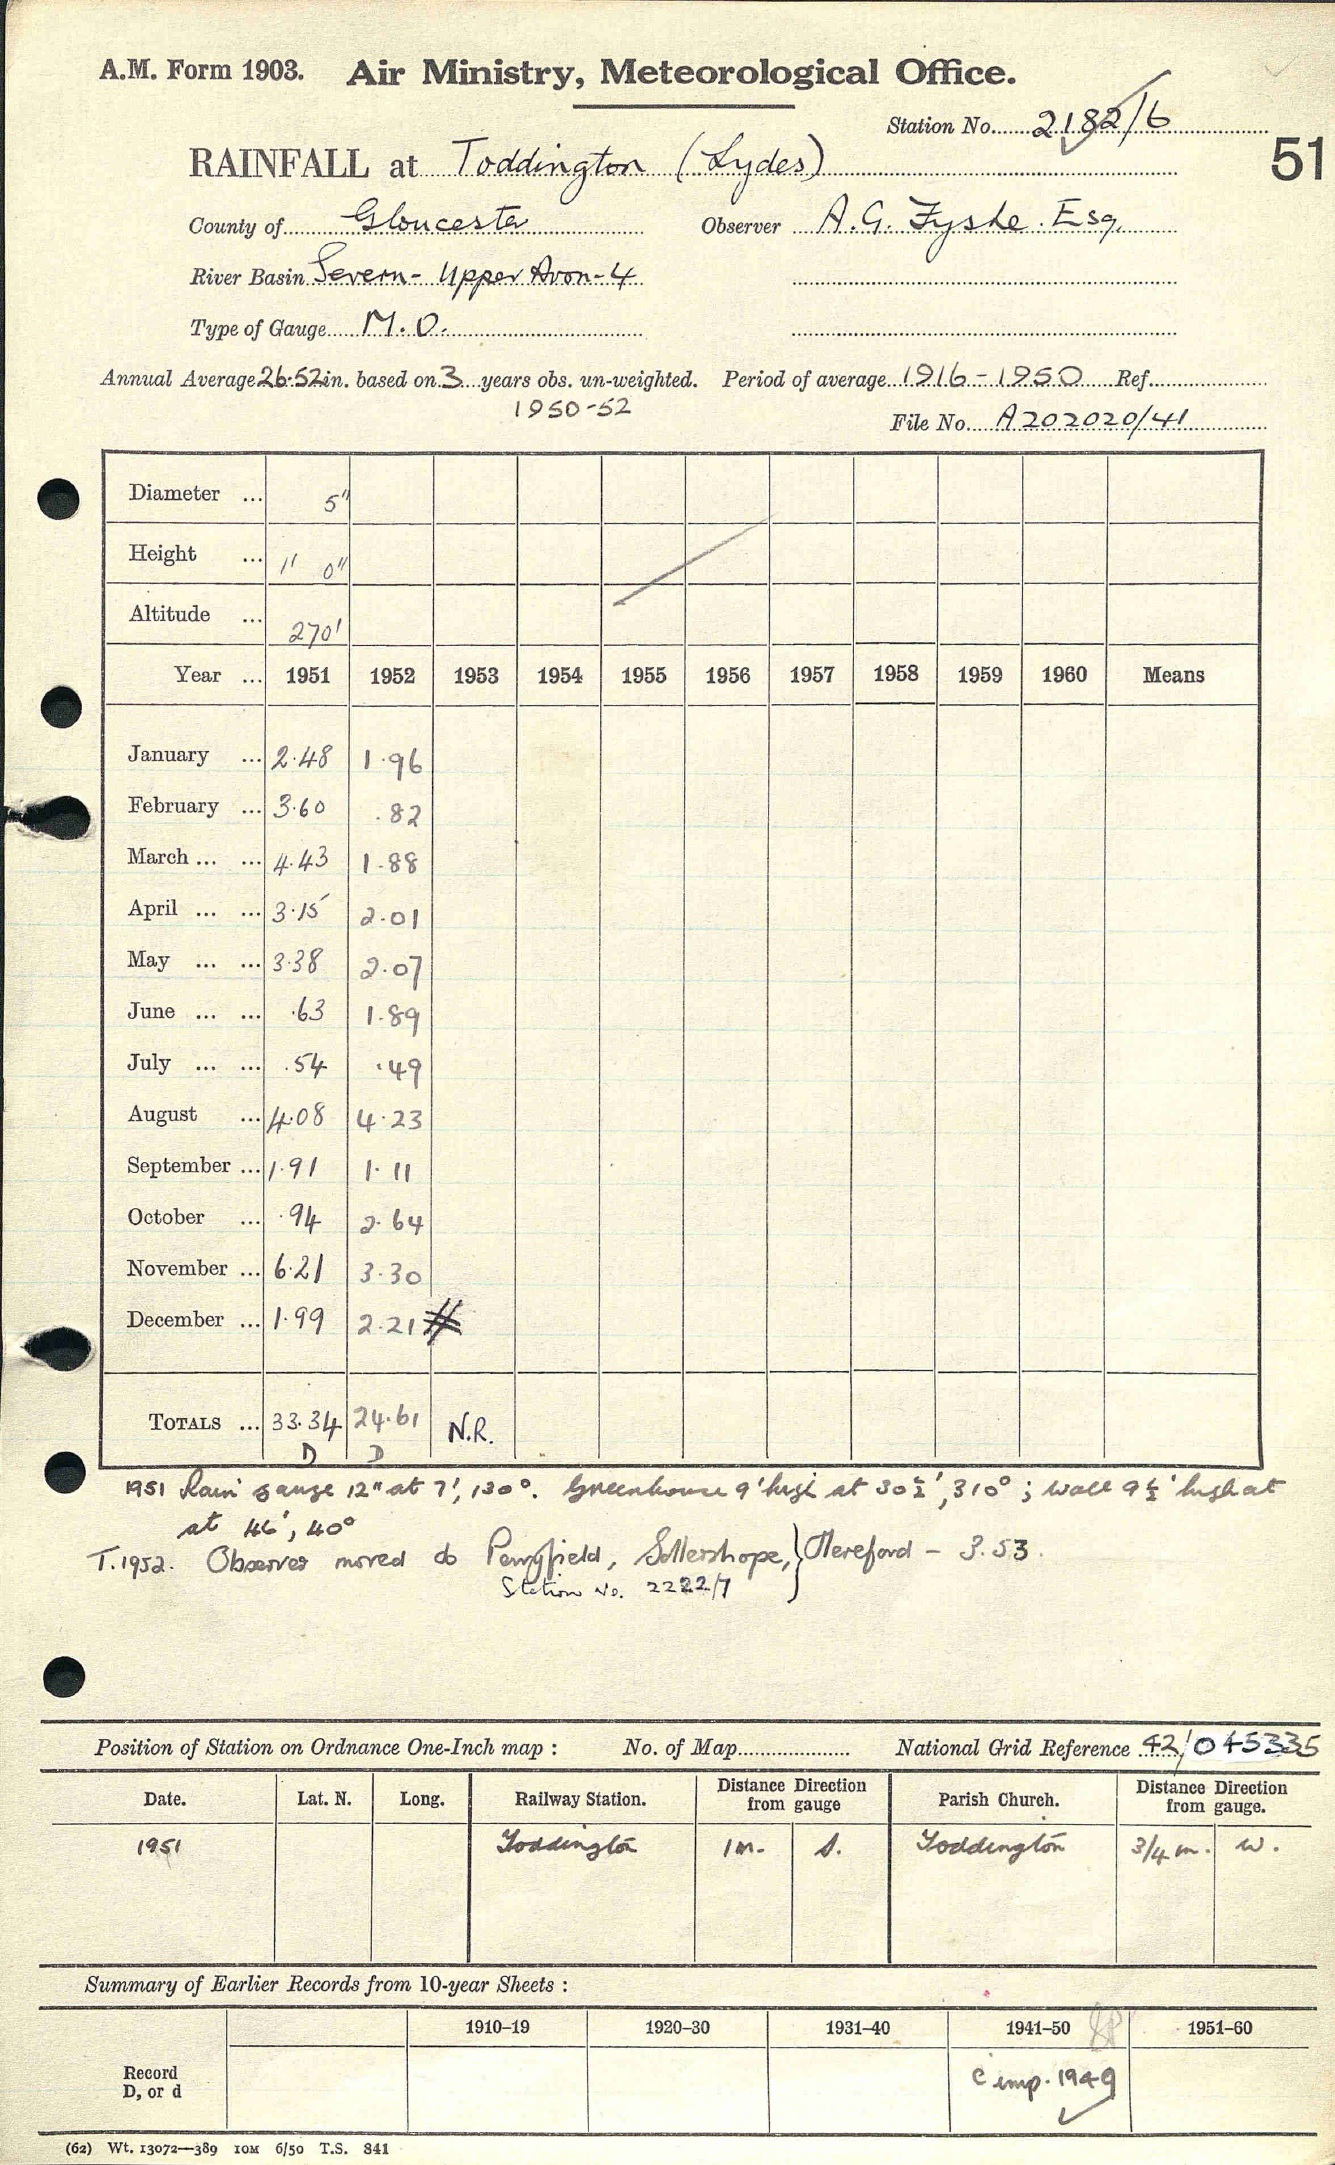 A.M. Form 1903. Air Ministry, Meteorological Office.
Station No. 2182/6
51
RAINFALL at Toddington (Lydes)
County of Gloucester Observer A.G. Fyshe. Esq.
River Basin Severn - Upper Avon - 4
Type of Gauge M.O.
Annual Average 26.52 in. based on 3 years obs. un-weighted. Period of average 1916-1950 Ref.
1950-52
File No. A202020/41
Diameter ... 5"
Height ... 1' 0"
Altitude ... 270'
Year ... 1951 1952 1953 1954 1955 1956 1957 1958 1959 1960 Means
January ... 2.48 1.96
February ... 3.60 .82
March ... ... 4.43 1.88
April ... ... 3.15 2.01
May ... ... 3.38 2.07
June ... ... .63 1.89
July ... ... .54 .49
August ... 4.08 4.23
September ... 1.91 1.11
October ... .94 2.64
November ... 6.21 3.30
December ... 1.99 2.21
TOTALS ... 33.34 24.61 N.R.
D D
1951 Rain gauge 12" at 7', 130°. Greenhouse 9' high at 30½', 310°; wall 9½' high at
at 46', 40°
T.1952. Observer moved to Sollershope, } Hereford - 3.53.
Station No. 2222/7
Position of Station on Ordnance One-Inch map : No. of Map National Grid Reference 42/045335
Date. Lat. N. Long. Railway Station. Distance Direction from gauge Parish Church. Distance Direction from gauge.
1951 Toddington 1 m. S. Toddington 3/4 m. W.
Summary of Earlier Records from 10-year Sheets :
1910-19 1920-30 1931-40 1941-50 1951-60
Record
D, or d
C imp. 1949
(62) Wt. 13072—389 10M 6/50 T.S. 841